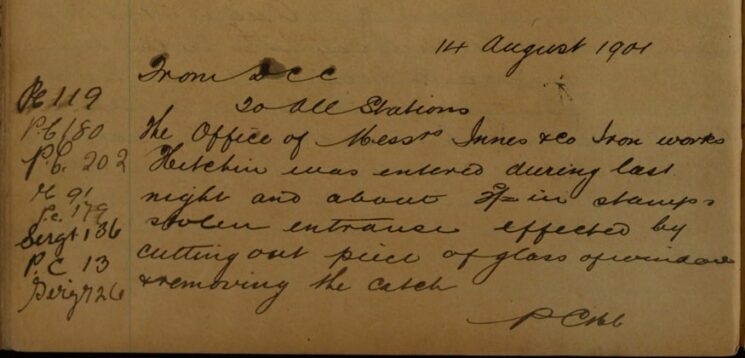 14 August 1901
From DCC
To All Stations
The Office of Messrs Innes & Co Iron works
Hitchin was entered during last
night and about in stamps
stolen entrance effected by
cutting out piece of glass of window
& removing the catch
PC 119
P.C 180
P.C. 202
91
P.c. 179
Sergt 136
P.C. 13
Sergt 726